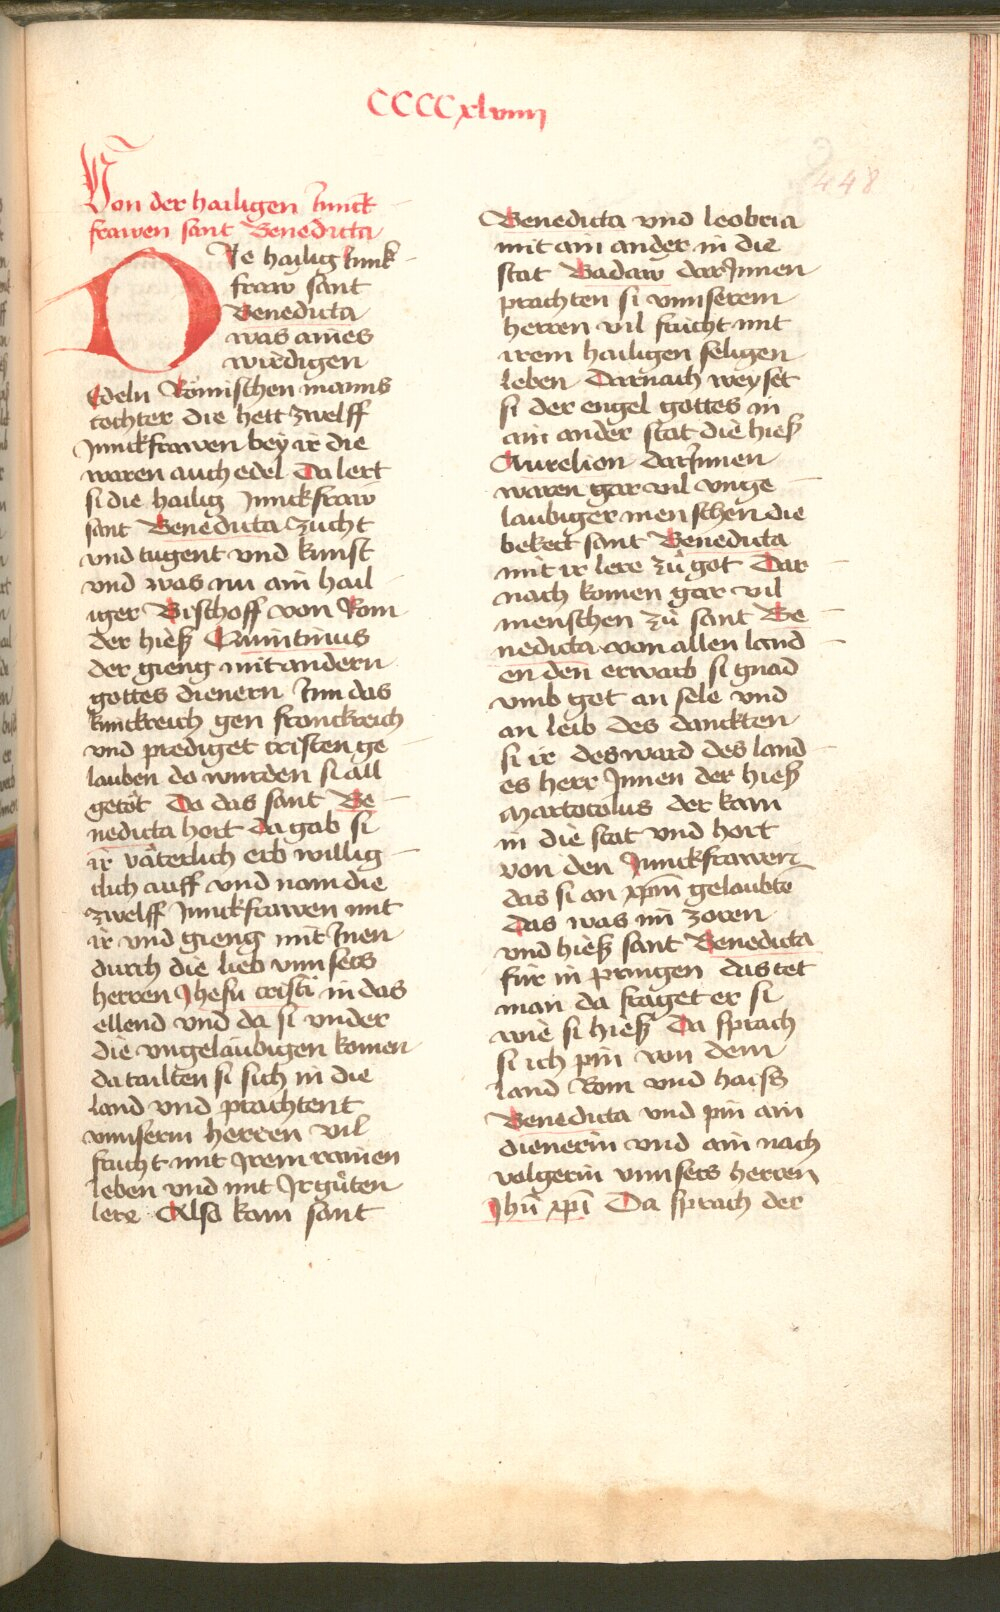 CCCCxlviiij
448
Von der hailigen Junck
frawen sant Benedicta
DIe hailig Junk
fraw sant
Benedicta
was aines
wirdigen
Edeln Römischen manns
tochter die hett zwelff
Junckfrawen bey ir die
waren auch edel Da lert
si die hailig Junckfraw
sant Benedicta zucht
vnd tugent vnd kunst
vnd was nu ain hail
iger Bischoff von Rom
der hieß Quintinus
der gieng mit andern
gottes dienern Jnn das
kunckreich gen franckreich
vnd prediget cristen ge
lauben do wurden si all
getöt Da das sant Be
nedicta hort Da gab si
ir väterlich erb willig
clich auff vnd nam die
zwelff Junckfrawen mit
ir vnd gieng mit Jnen
durch die lieb vnnsers
herren Jhesu cristi in das
ellend vnd da si vnder
die vngelaubigen komen
da tailten si sich in die
land vnd prachtent
vnnserm herren vil
frucht mit Jrem rainen
leben vnd mit Jr gůten
lere Also kam sant
Benedicta vnd leobria
mit ain ander in die
stat Badaw darJnnen
prachten si vnnserem
herren vil frücht mit
irem hailigen seligen
leben Darnach weyset
si der engel gottes in
ain ander stat die hieß
Aurelion darJnnen
waren gar vil vnge
laubiger menschen die
bekert sant Benedicta
mit ir lere zů got Dar
nach komen gar vil
menschen zů sant Be
nedicta von allen land
en den erwarb si gnad
vmb got an sele vnd
an leib des danckten
si ir des ward des land
es herr Jnnen der hieß
Martotolus der kam
in die stat vnd hort
von den Junckfrawen
das si an xpm̄ gelaubtē
Das was im zoren
vnd hieß sant Benedicta
für in pringen das tet
man da fraget er si
wie si hieß Da sprach
si ich pin von dem
land Rom vnd haiss
Benedicta vnd pin ain
dienerin vnd ain nach
volgerin vnnsers herren
Jhū xpī Da sprach der